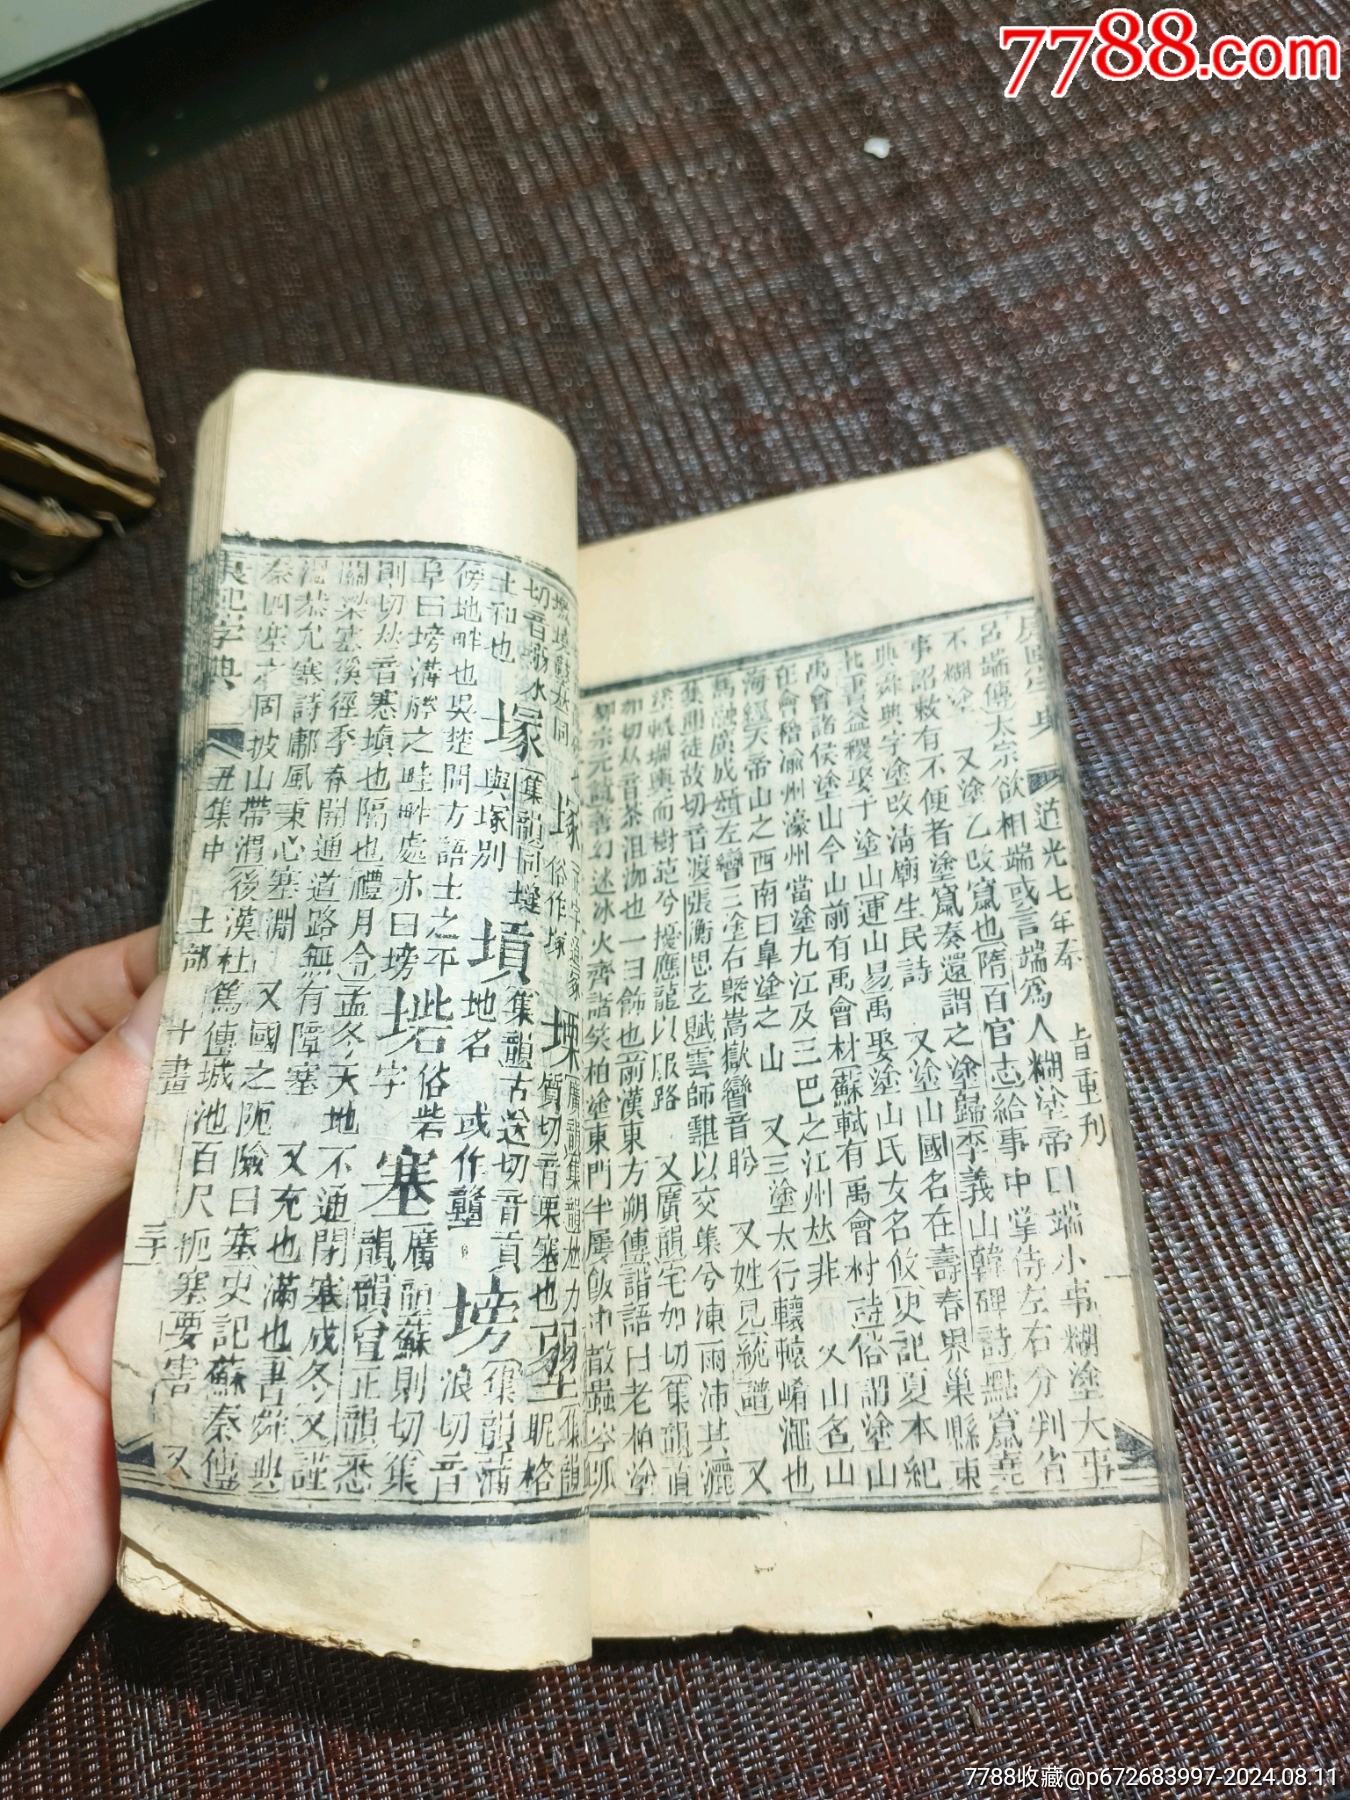 7788.com
康熙字典
道光七年奉
旨重刊
呂端傳太宗欲相端或言端爲人糊塗帝曰端小事糊塗大事
不糊塗 又塗乙改竄也隋百官志給事中掌侍左右分判省
事詔敕有不便者塗竄奏還謂之塗歸李義山韓碑詩點竄堯
典舜典字塗改淸廟生民詩 又塗山國名在壽春界巢縣東
北書益稷娶于塗山連山易禹娶塗山氏女名攸史記夏本紀
禹會諸侯塗山今山前有禹會村蘇軾有禹會村詩俗謂塗山
在會稽渝州濠州當塗九江及三巴之江州𠀤非 又山名山
海經天帝山之西南曰臯塗之山 又三塗太行轘轅崤澠也
馬融廣成頌左矕三塗右槩嵩嶽矕音盼 又姓見統譜 又
集韻徒故切音渡張衡思玄賦雲師䨴以交集兮凍雨沛其灑
塗轙琱輿而樹葩兮擾應龍以服路 又廣韻宅加切集韻直
加切𠀤音茶沮洳也一曰飾也前漢東方朔傳諧語曰老柏塗
柳宗元
冰火齊諧笑柏塗東門牛屢飯中散蝨空爬
塚 俗作塚
塛 廣韻集韻𠀤力
質切音栗塞也
塑 集韻
昵格
切音
水
土和也
塚 集韻同墶
與塚別
塡 集韻古送切音貢
地名 或作𡔅
塝 集韻蒲
浪切音
傍地畔也吳楚閒方語土之平
阜曰塝溝塍之畦畔處亦曰塝
塝字
俗砦
塞 廣韻蘇則切集
韻韻會正韻悉
則切𠀤音塞塡也隔也禮月令孟冬天地不通閉塞成冬又謹
關梁塞徯徑季春開通道路無有障塞 又充也滿也書舜典
溫恭允塞詩鄘風秉心塞淵 又國之阨險曰塞史記蘇秦傳
秦四塞之國披山帶渭後漢杜篤傳城池百尺扼塞要害 又
康熙字典
丑集中 土部 十畫
7788收藏@p672683997-2024.08.11